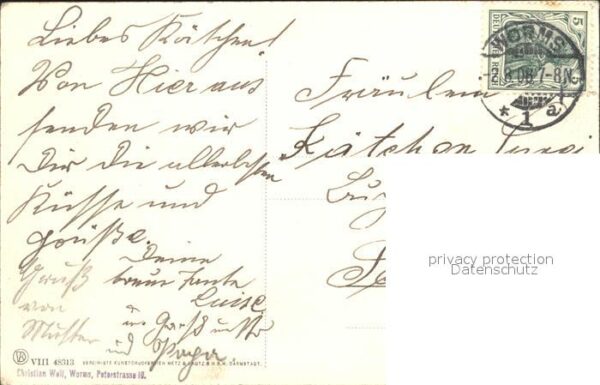 Liebes Kätchen!
Von Hier aus
senden wir
Dir die allerbesten
Küsse und
Grüße.
Deine
treue Tante
Luise.
Gruß
von
Mutter
und Papa.
Fräulein
Kätchen
DEUTSCHES REICH
5
WORMS
8.08.7-8N
* 1 a
privacy protection
Datenschutz
VIII 48513 VEREINIGTE KUNSTDRUCKEREIEN METZ & LAUTZ G.M.B.H. DARMSTADT.
Christian Well, Worms, Peterstrasse 10.